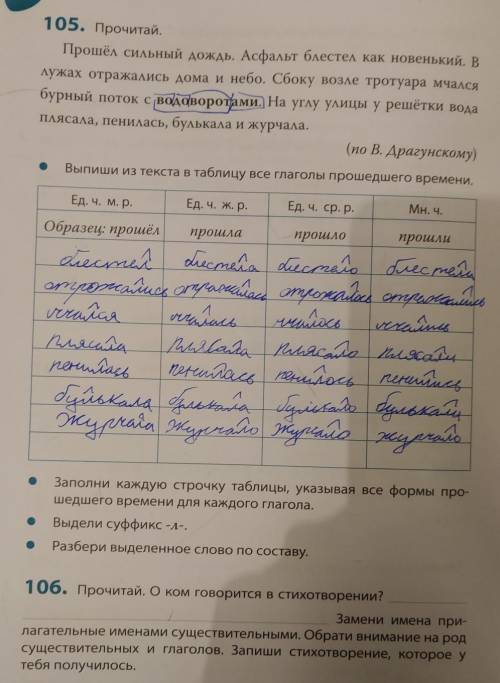 105. Прочитай.
Прошёл сильный дождь. Асфальт блестел как новенький. В
лужах отражались дома и небо. Сбоку возле тротуара мчался
бурный поток с водоворотами. На углу улицы у решётки вода
плясала, пенилась, булькала и журчала.
(по В. Драгунскому)
• Выпиши из текста в таблицу все глаголы прошедшего времени.
Ед. ч. м. р. Ед. ч. ж. р. Ед. ч. ср. р. Мн. ч.
Образец: прошёл прошла прошло прошли
блестел блестела блестело блестели
отрожались отражилась отрожалось отрожались
мчался мчалась мчалось мчались
плясала плясала плясало плясали
пенилась пенилась пенилось пенились
булькала булькала булькало булькали
журчала журчало журчало журчало
• Заполни каждую строчку таблицы, указывая все формы про-
шедшего времени для каждого глагола.
• Выдели суффикс -л-.
• Разбери выделенное слово по составу.
106. Прочитай. О ком говорится в стихотворении?
Замени имена при-
лагательные именами существительными. Обрати внимание на род
существительных и глаголов. Запиши стихотворение, которое у
тебя получилось.